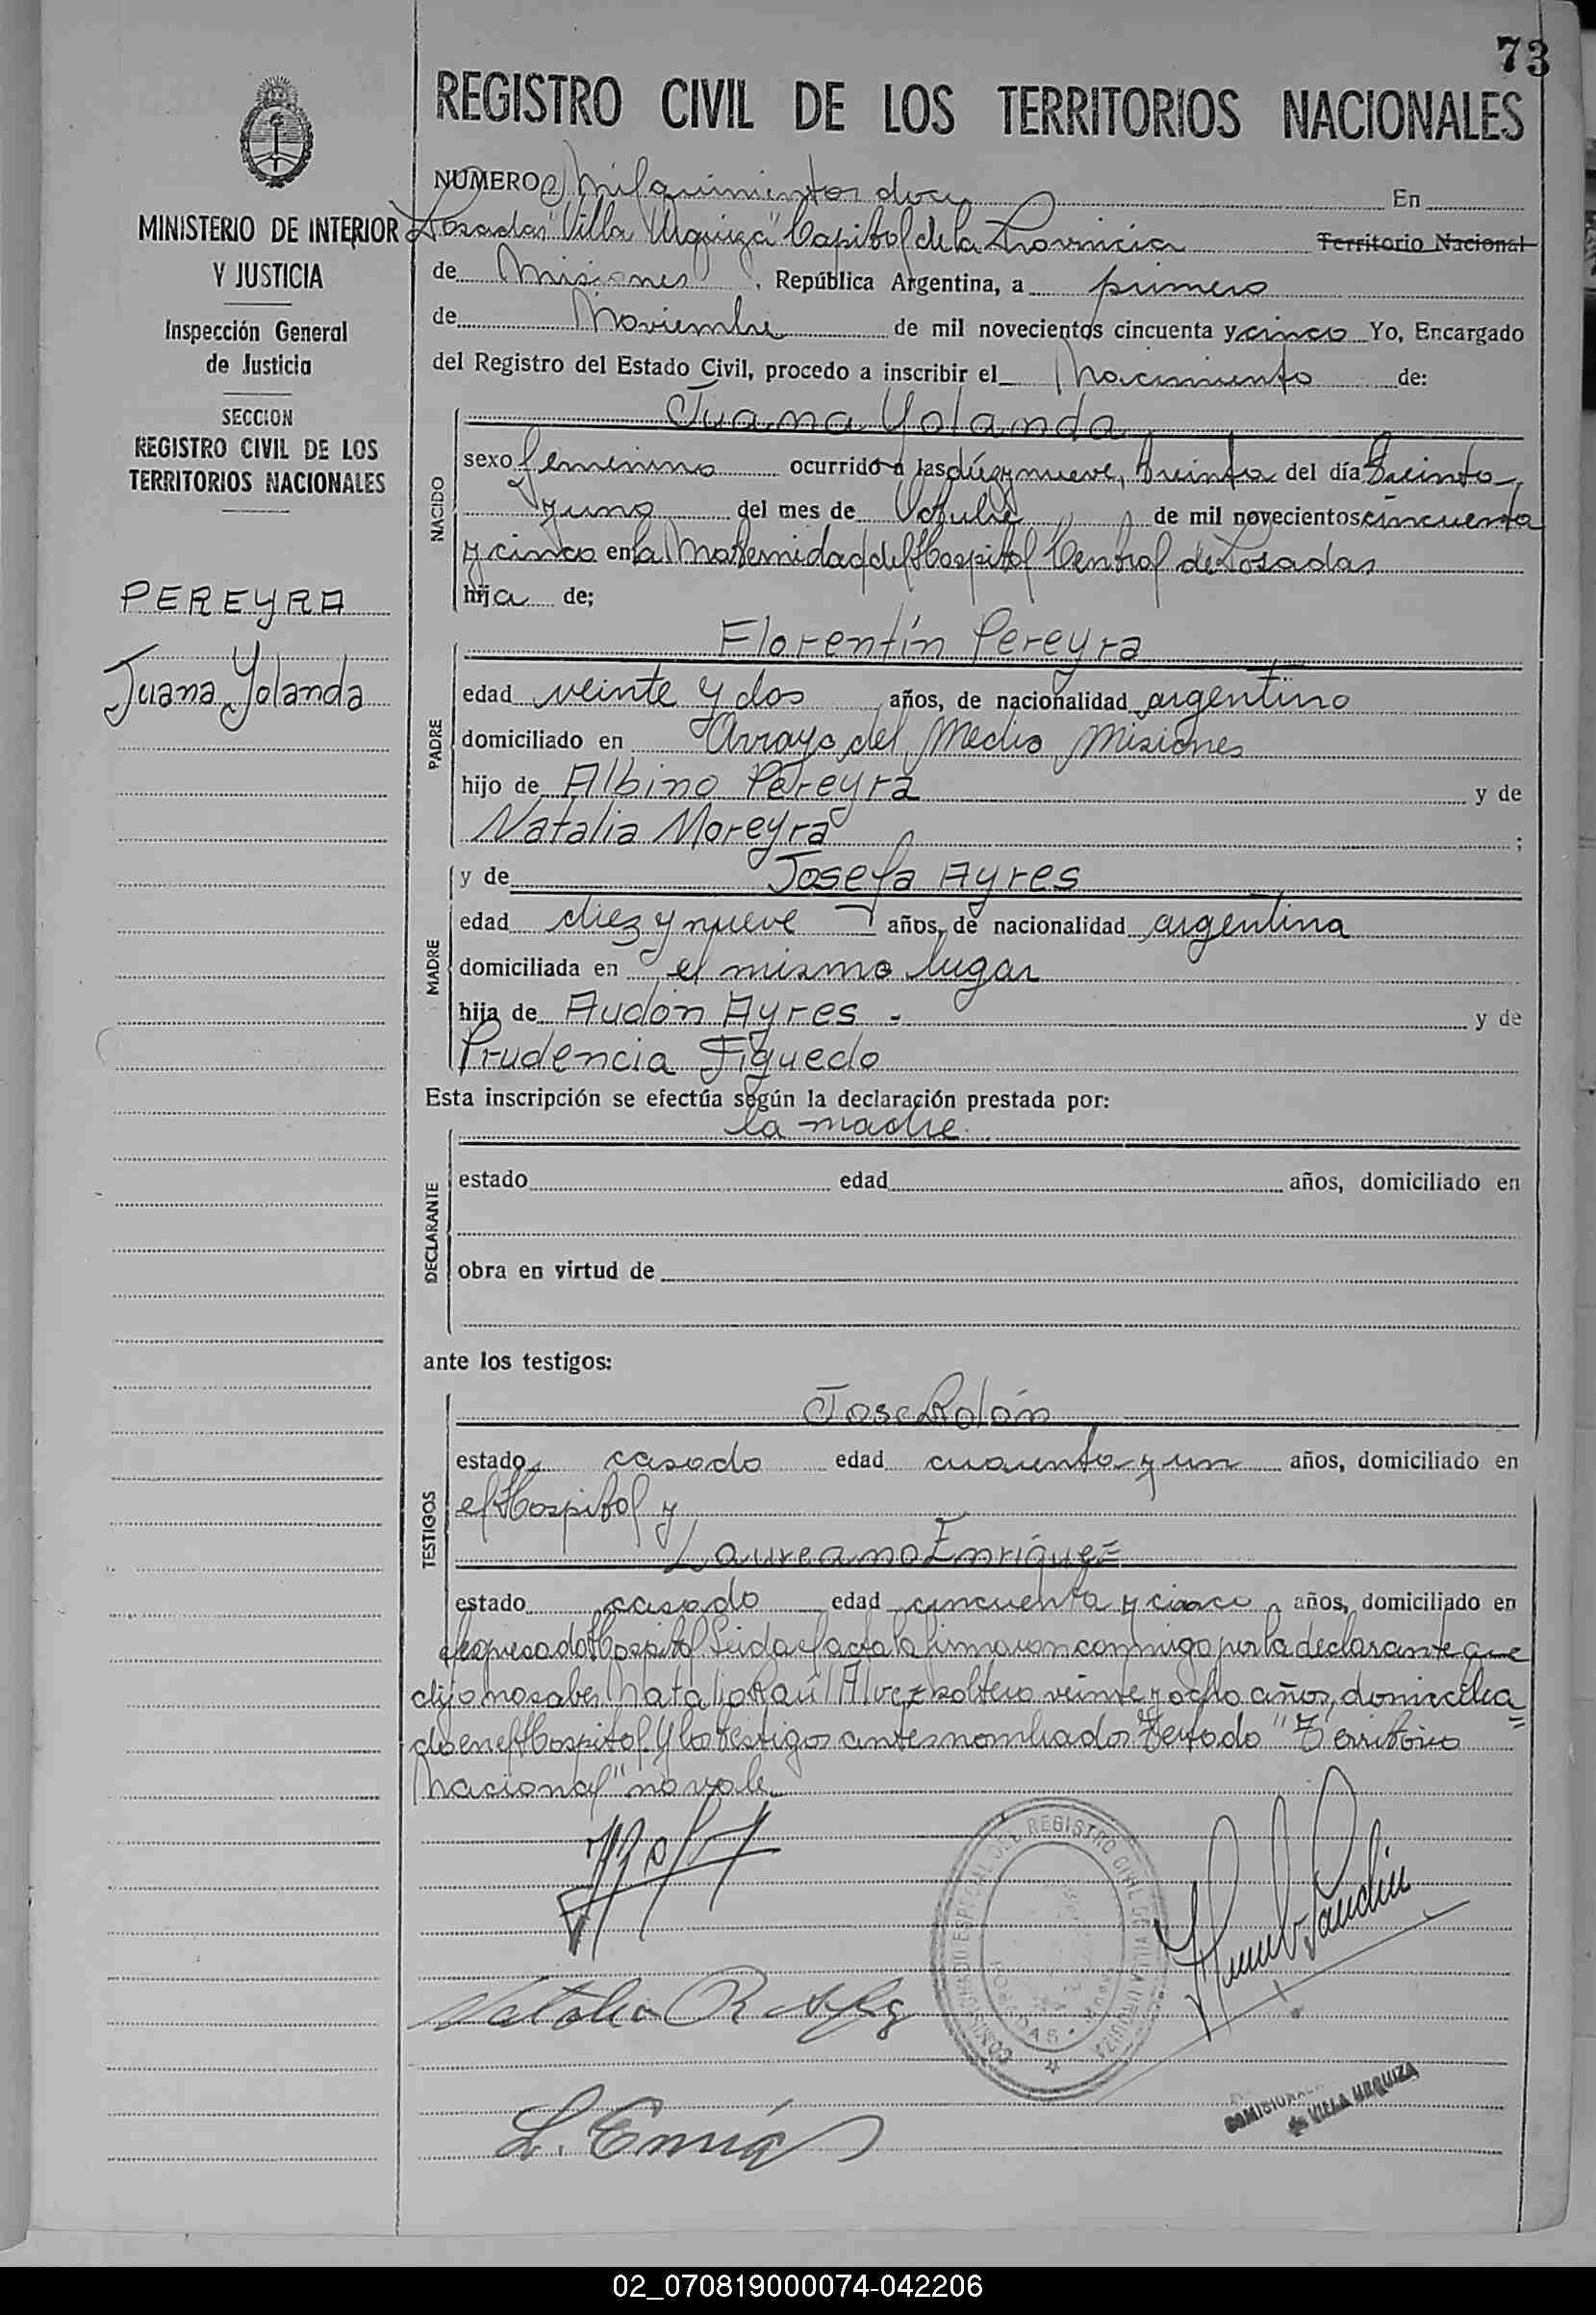 73
REGISTRO CIVIL DE LOS TERRITORIOS NACIONALES
MINISTERIO DE INTERIOR
Y JUSTICIA
Inspección General
de Justicia
SECCION
REGISTRO CIVIL DE LOS
TERRITORIOS NACIONALES
PEREYRA
Juana Yolanda
NUMERO Mil quinientos doce En
Posadas "Villa Urquiza" Capital de la Provincia Territorio Nacional
de Misiones, República Argentina, a primero
de Noviembre de mil novecientos cincuenta y cinco Yo, Encargado
del Registro del Estado Civil, procedo a inscribir el Nacimiento de:
NACIDO
Juana Yolanda
sexo femenino ocurrido a las diez y nueve, treinta del día treinta
y uno del mes de Octubre de mil novecientos cincuenta
y cinco en la Maternidad del Hospital Central de Posadas
hija de;
PADRE
Florentín Pereyra
edad veinte y dos años, de nacionalidad argentino
domiciliado en Arroyo del Medio Misiones
hijo de Albino Pereyra y de
Natalia Moreyra ;
MADRE
y de Josefa Ayres
edad diez y nueve años, de nacionalidad argentina
domiciliada en el mismo lugar
hija de Audón Ayres - y de
Prudencia Figuedo
Esta inscripción se efectúa según la declaración prestada por:
DECLARANTE
la madre.
estado edad años, domiciliado en
obra en virtud de
ante los testigos:
TESTIGOS
Jose Rolón
estado casado edad cuarenta y un años, domiciliado en
el Hospital y
Laureano Enríquez
estado casado edad cincuenta y cinco años, domiciliado en
el expresado Hospital Leida el acta la firmaron conmigo por la declarante que
dijo no saber Natalio Raúl Alvez soltero veinte y ocho años, domicilia=
do en el Hospital y los testigos antes nombrados Testado "Territorio
Nacional" no vale
COMISIONADO ESPECIAL DEL REGISTRO CIVIL DE VILLA URQUIZA
POSADAS
Natalio R Alvez
L. Enríq
de VILLA URQUIZA
02_070819000074-042206